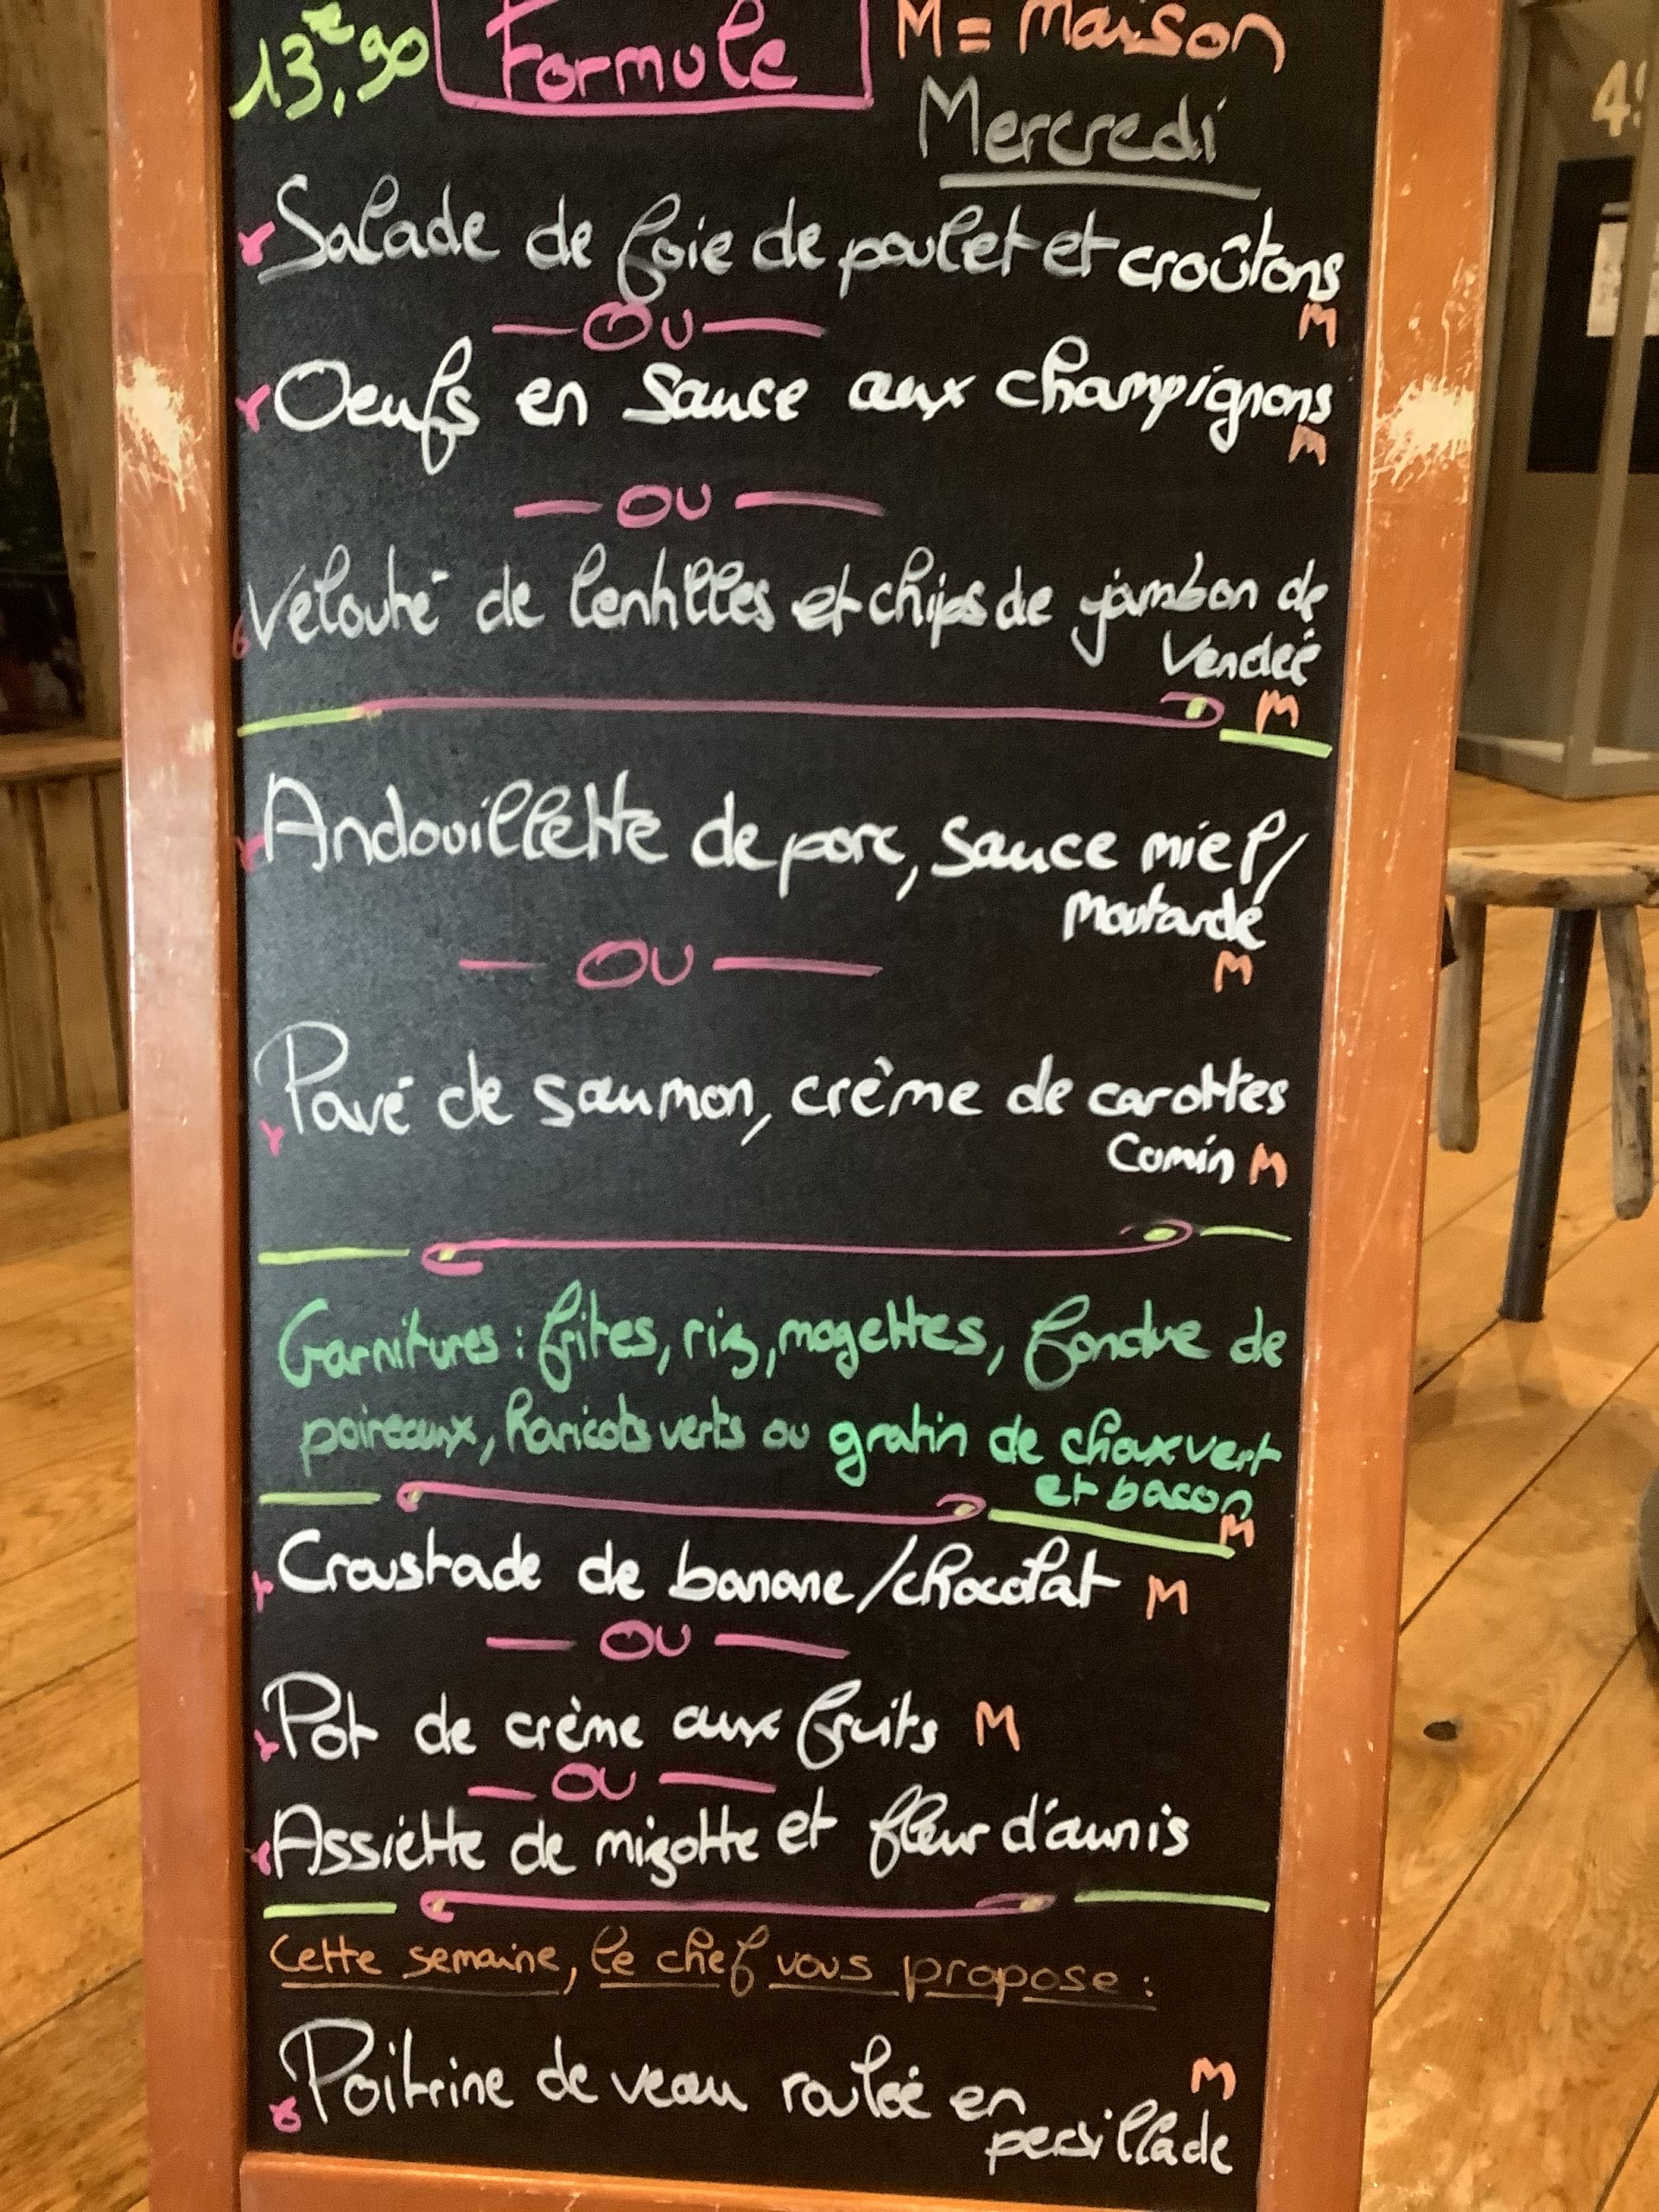 13,€90 Formule M = Maison
Mercredi
Salade de foie de poulet et croûtons
M
— Ou —
Oeufs en sauce aux champignons
M
— OU —
Velouté de lentilles et chips de jambon de
Vendée
M
Andouillette de porc, sauce miel/
moutarde
— OU —
M
Pavé de saumon, crème de carottes
Cumin M
Garnitures : frites, riz, mogettes, fondue de
poireaux, haricots verts ou gratin de choux vert
et bacon
M
Croustade de banane/chocolat M
— OU —
Pot de crème aux fruits M
— OU —
Assiette de mizotte et fleur d'aunis
Cette semaine, le chef vous propose :
Poitrine de veau roulée en M
persillade